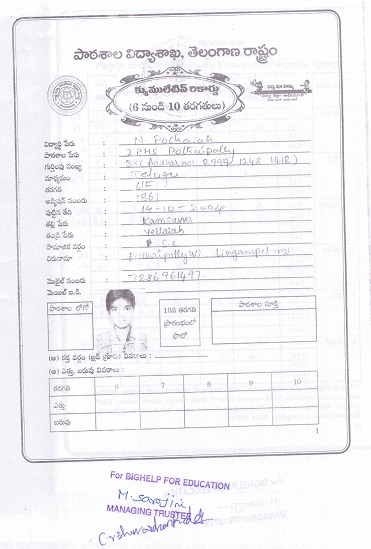 పాఠశాల విద్యాశాఖ, తెలంగాణ రాష్ట్రం
క్యుములేటివ్ రికార్డు
(6 నుండి 10 తరగతులు)
విద్యార్థి పేరు : M. Pochaiah
పాఠశాల పేరు : ZPHS Pothaipally
గుర్తింపు సంఖ్య : (Aadhar no:
మాధ్యమం : Telugu
తరగతి : 6th
అడ్మిషన్ నంబరు : 1861
పుట్టిన తేది : 14-10-2004
తల్లి పేరు :
తండ్రి పేరు : Yellaiah
సామాజిక వర్గం : S.C
చిరునామా : Pothaipally(v) Lingampet
మొబైల్ నంబరు : 7286961497.
మెయిల్ ఐ.డి.
పాఠశాల లోగో
10వ తరగతి
ప్రారంభంలో
ఫొటో
పాఠశాల సూక్తి
(అ) రక్త వర్గం (బ్లడ్ గ్రూపు) వివరాలు :
(ఆ) ఎత్తు, బరువు వివరాలు :
తరగతి 6 7 8 9 10
ఎత్తు
బరువు
1
For BIGHELP FOR EDUCATION
M. Sarojini
MANAGING TRUSTEE